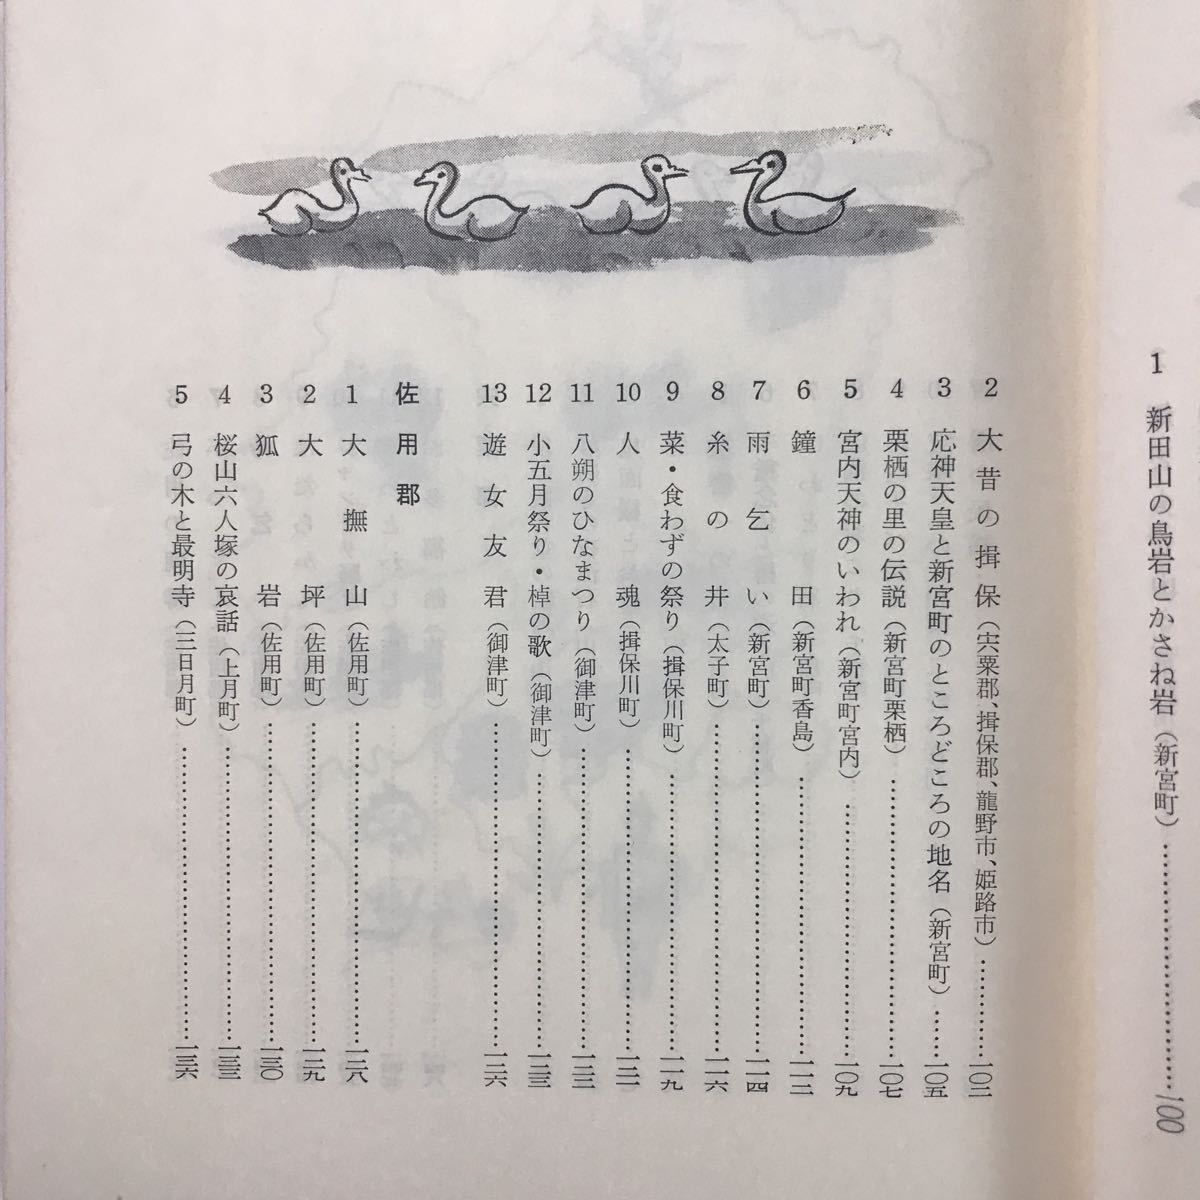 1 新田山の鳥岩とかさね岩（新宮町）……………100
2 大昔の揖保（宍粟郡、揖保郡、龍野市、姫路市）…………一〇二
3 応神天皇と新宮町のところどころの地名（新宮町）……一〇五
4 栗栖の里の伝説（新宮町栗栖）……………一〇七
5 宮内天神のいわれ（新宮町宮内）……………一〇九
6 鐘田（新宮町香島）……………一一二
7 雨乞い（新宮町）……………一一四
8 糸の井（太子町）……………一一六
9 菜・食わずの祭り（揖保川町）……………一一九
10 人魂（揖保川町）……………一二一
11 八朔のひなまつり（御津町）……………一二二
12 小五月祭り・棹の歌（御津町）……………一二三
13 遊女友君（御津町）……………一二六
佐用郡
1 大撫山（佐用町）……………一二八
2 大坪（佐用町）……………一二九
3 狐岩（佐用町）……………一三〇
4 桜山六人塚の哀話（上月町）……………一三三
5 弓の木と最明寺（三日月町）……………一三六